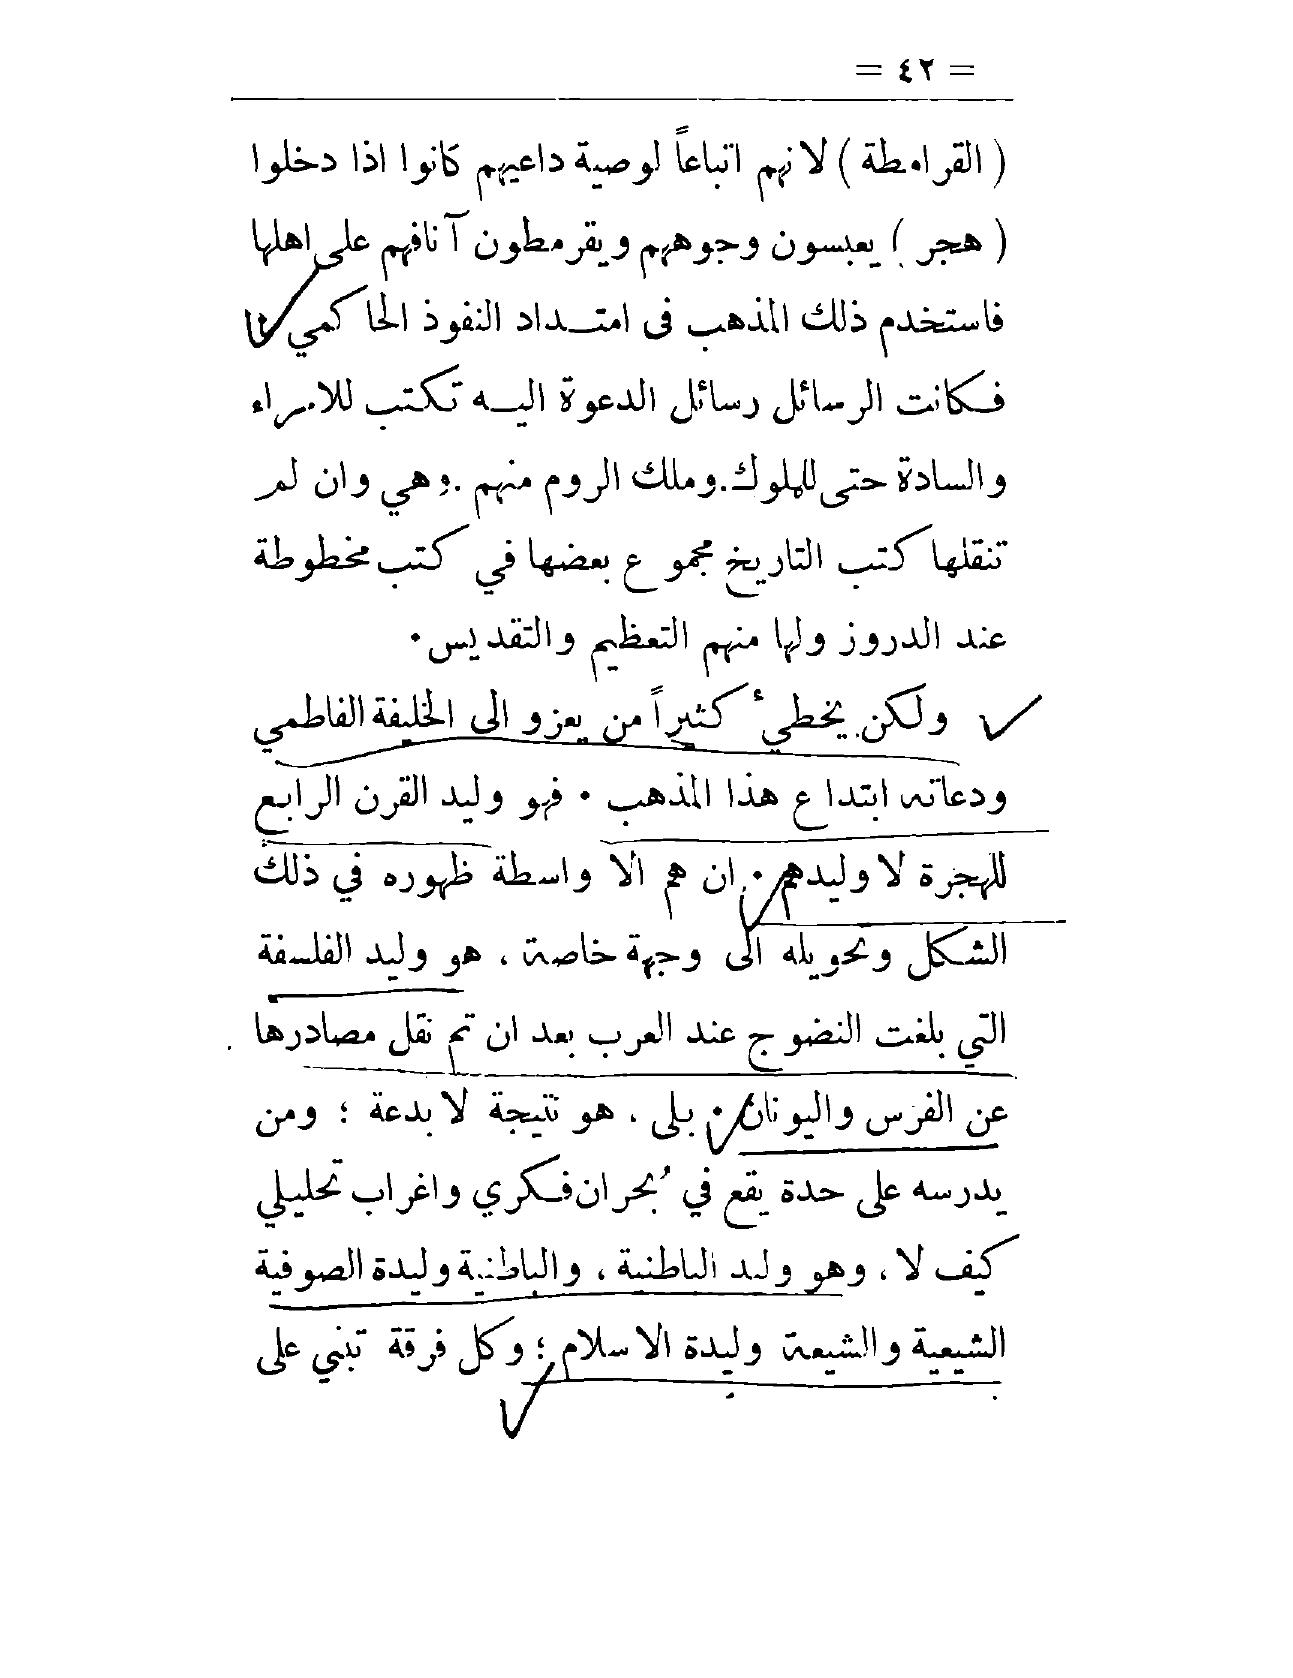 = ٤٢ =
( القرامطة ) لانهم اتباعاً لوصية داعيهم كانوا اذا دخلوا
( هجر ) يعبسون وجوههم ويقرمطون آنافهم على اهلها
فاستخدم ذلك المذهب فى امتداد النفوذ الحاكمي
فكانت الرسائل رسائل الدعوة اليه تكتب للامراء
والسادة حتى للملوك. وملك الروم منهم . وهي وان لم
تنقلها كتب التاريخ مجموع بعضها في كتب مخطوطة
عند الدروز ولها منهم التعظيم والتقديس ٠
ولكن يخطيء كثيراً من يعزو الى الخليفة الفاطمي
ودعاته ابتداع هذا المذهب ٠ فهو وليد القرن الرابع
للهجرة لا وليدهم ٠ ان هم الا واسطة ظهوره في ذلك
الشكل وتحويله الى وجهة خاصة ، هو وليد الفلسفة
التي بلغت النضوج عند العرب بعد ان تم نقل مصادرها
عن الفرس واليونان ٠ بلى ، هو نتيجة لا بدعة ؛ ومن
يدرسه على حدة يقع في بُحران فكري واغراب تحليلي
كيف لا ، وهو وليد الباطنية ، والباطنية وليدة الصوفية
الشيعية والشيعة وليدة الاسلام ؛ وكل فرقة تبنى على